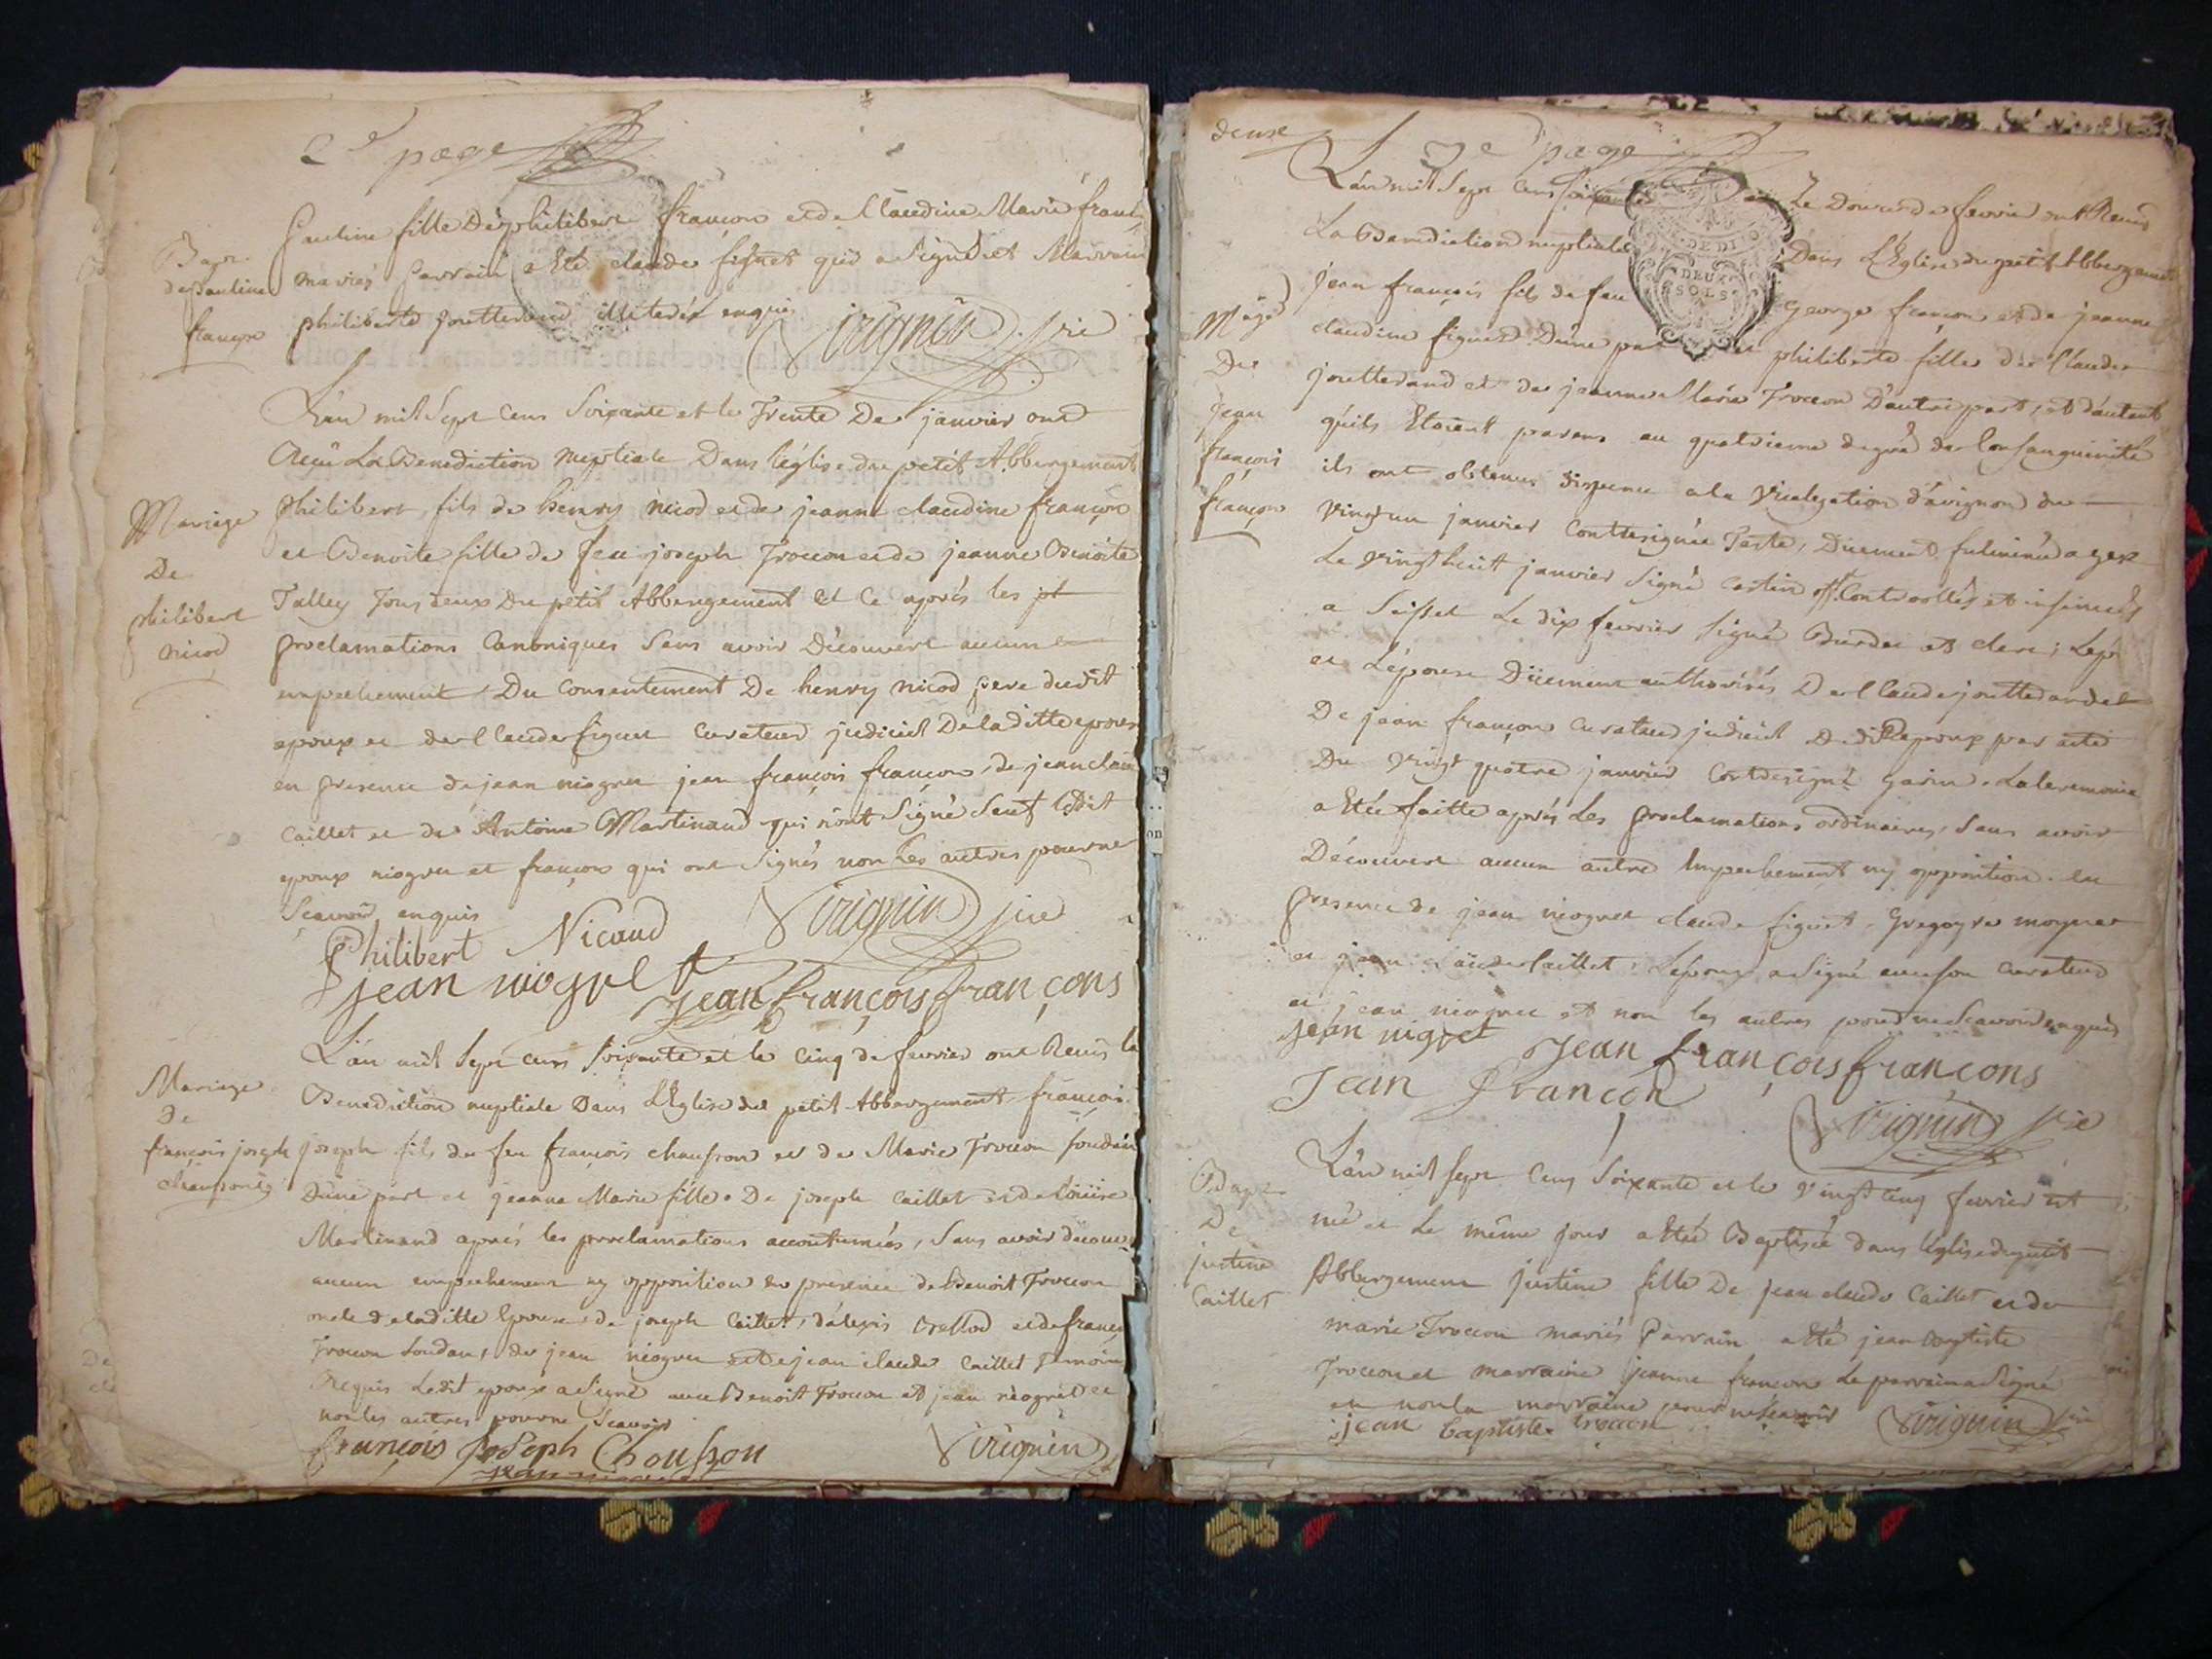 2e page
Pauline fille de philibert françon et de Claudine Marie franç
Bapt.
de pauline
françon
mariés parrain a Eté claude figuet qui a Signé et Marraine
philiberte joutterand illiterés enquis
Virignin vic
L'an mil Sept Cens Soixante et le Trente De janvier ont
Reçû La Benediction Nuptiale Dans l'église du petit Abbergement
Mariage
De
philibert
nicod
philibert, fils de henry nicod et de jeanne claudine françon
et Benoite fille de feu joseph Trocon et de jeanne Benoite
Talley Tous deux Du petit Abbergement et Ce aprés les
proclamations Canoniques Sans avoir Découvert aucun
empechement Du Consentement De henry nicod pere dudit
epoux et de Claude figuet Curateur judiciel De la ditte epouse
en presence de jean niogret jean françois françon, de jean clau
Caillet et de Antoine Martinand qui n'ont Signé Sauf ledit
epoux niogret et françon qui ont Signés non les autres pour ne
Sçavoir enquis
Virignin vic
Philibert Nicaud
jean niogret
jean françois françons
L'an mil Sept cens Soixante et le Cinq de fevrier ont Reçus la
Benediction nuptiale Dans L'Eglise du petit Abbergement françois
Mariage
De
françois joseph
chausson
joseph fils de feu françois chausson et de Marie Trocon Soudan
D'une part et jeanne Marie fille De joseph Caillet et de Loüise
Martinand aprés les proclamations accoutumées, Sans avoir découve
aucun empechement ny opposition en presence de Benoit Trocon
oncle de la ditte Epouse, de joseph Caillet, d'alexis et de franç
Trocon Soudan, de jean niogret et de jean claude Caillet Temoins
Requis Ledit epoux a Signé avec Benoit Trocon et jean niogret et
non les autres pour ne Sçavoir
françois Joseph Chousson
Virignin
3e page
L'an mil Sept Cens Soixante Le Douze de fevrier ont Reçus
La Benediction nuptiale Dans L'Eglise du petit Abbergement
jean françois fils de feu George françon et de jeanne
Mage
De
jean
françois
françon
claudine figuet D'une part et philiberte fille de Claude
joutterand et de jeanne Marie Trocon D'autre part, et d'autant
qu'ils Etoient parens au quatrieme degré de Consanguinité
ils ont obtenus dispense a la Vicelegation d'avignon du
Vingt un janvier Contresignée Teste, Düement fulminée a gex
Le Vingt huit janvier Signé Castin off. Controllés et insinués
a Seissel Le dix fevrier Signé Burdet et clerc; Lepx
et L'épouse Düement authorisés De Claude jouttedand et
De jean françon Curateur judiciel Dudit Epoux par acte
Du Vingt quatre janvier Contresigné garin. La Ceremonie
a Etée faitte aprés Les proclamations ordinaires, Sans avoir
Découvert aucun autre Empechement ny opposition. En
presence de jean niogret claude figuet, Gregoyre moynet
et jean Claude Caillet. L'epoux a Signé avec son Curateur
et jean niogret et non les autres pour ne Sçavoir enquis
jean nigret
jean françois françons
Jean Françon
Virignin vic
L'an mil Sept Cens Soixante et le Vingt Cinq fevrier est
Bapt.
De
justine
Caillet
née et Le même jour a Eté Baptisée dans l'église du petit
Abbergement justine fille De jean claude Caillet et de
marie Trocon mariés Parrain a Eté jean baptiste
Trocon et marraine jeanne françon Le parrain a Signé
et non la marraine pour ne Sçavoir
jean baptiste trocon
Virignin vic
DEUX
SOLS